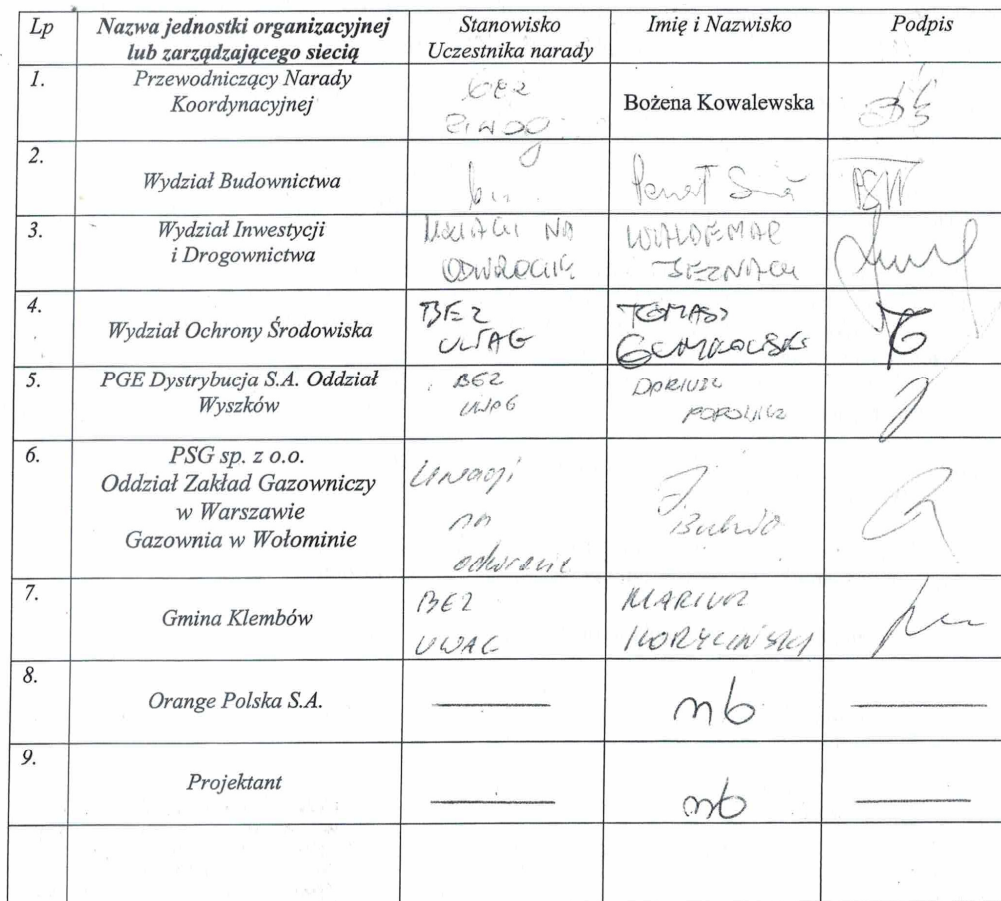 Lp Nazwa jednostki organizacyjnej lub zarządzającego siecią Stanowisko Uczestnika narady Imię i Nazwisko Podpis
1. Przewodniczący Narady Koordynacyjnej bez uwag Bożena Kowalewska
2. Wydział Budownictwa
3. Wydział Inwestycji i Drogownictwa UWAGI NA ODWROCIE WALDEMAR
4. Wydział Ochrony Środowiska BEZ UWAG TOMASZ
5. PGE Dystrybucja S.A. Oddział Wyszków BEZ UWAG DARIUSZ
6. PSG sp. z o.o. Oddział Zakład Gazowniczy w Warszawie Gazownia w Wołominie Uwagi na odwrocie
7. Gmina Klembów BEZ UWAG MARIUSZ
8. Orange Polska S.A. nb
9. Projektant nb